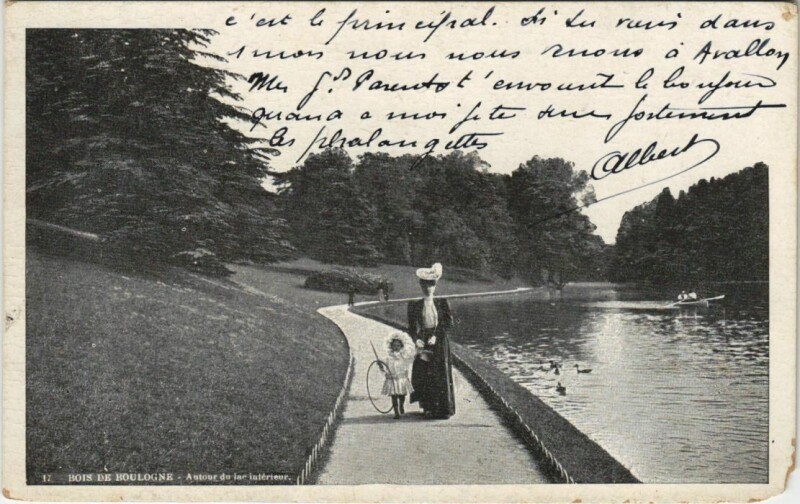 c'est le principal. Si tu viens dans
1 mois nous nous irons à Avallon
Mes Gds Parents t'envoient le bonjour
quand a moi je te serre fortement
les phalangettes
Albert
17 BOIS DE BOULOGNE - Autour du lac intérieur.